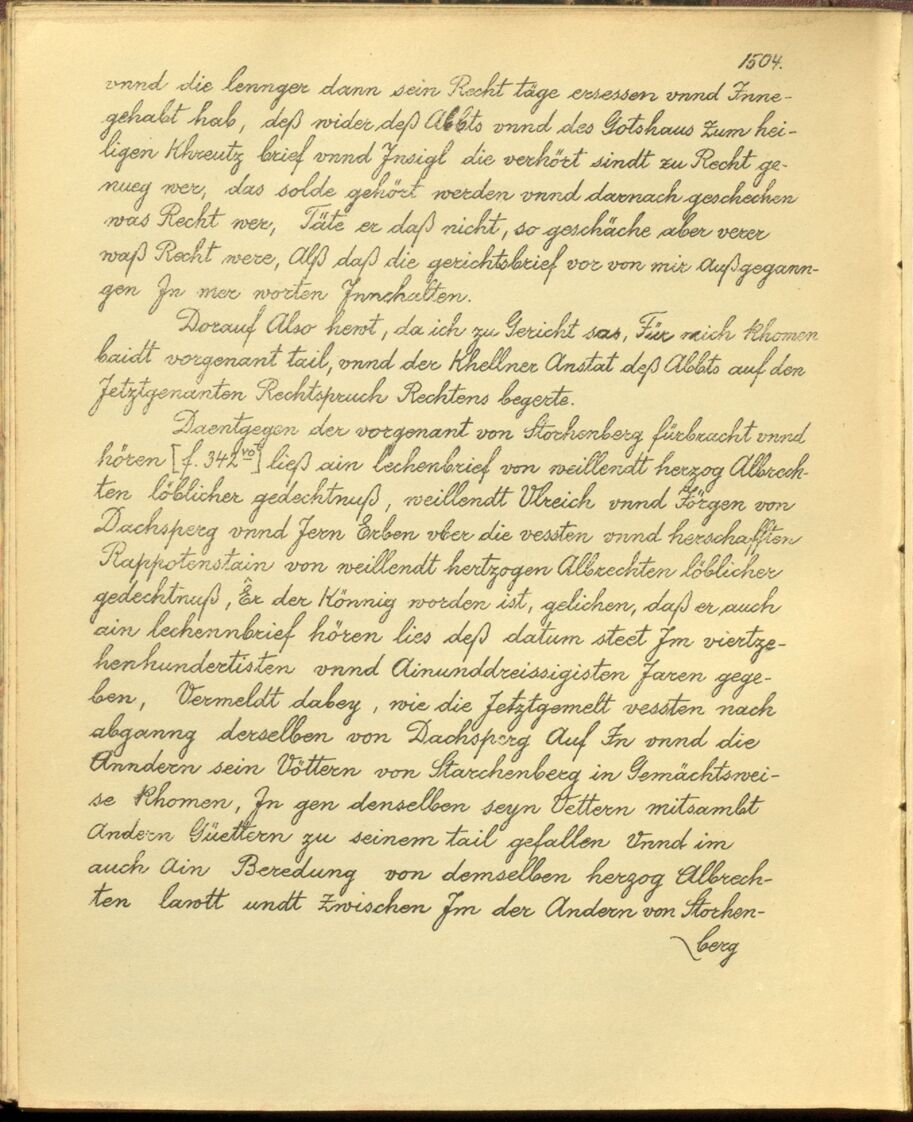 1504.
vnnd die lennger dann sein Recht täge ersessen vnnd Inne-
gehabt hab, deß wider deß Abbts vnnd des Gotshaus zum hei-
ligen Khreutz brief vnnd Insigl die verhört sindt zu Recht ge-
nueg wer, das solde gehört werden vnnd darnach geschechen
was Recht wer, Täte er daß nicht, so geschäche aber verer
waß Recht were, Alß daß die gerichtsbrief vor von mir Außgegann-
gen In mer worten Innhalten.
Dorauf Also hewt, da ich zu Gericht sas, Für mich Khomen
baidt vorgenant tail, vnnd der Khellner Anstat deß Abbts auf den
Jetztgenanten Rechtspruch Rechtens begerte.
Daentgegen der vorgenant von Storhenberg fürbracht vnnd
hören [f. 342vo] ließ ain lechenbrief von weillendt herzog Albrech-
ten löblicher gedechtnuß, weillendt Vlreich vnnd Jörgen von
Dachsperg vnnd Jern Erben vber die vessten vnnd herschafften
Rappotenstain von weillendt hertzogen Albrechten löblicher
gedechtnuß, Er der Könnig worden ist, gelichen, daß er auch
ain lechennbrief hören lies deß datum steet Im viertze-
henhundertisten vnnd Ainunddreissigisten Jaren gege-
ben, Vermeldt dabey, wie die Jetztgemelt vessten nach
abganng derselben von Dachsperg Auf In vnnd die
Anndern sein Vöttern von Starchenberg in Gemächtswei-
se Khomen, In gen denselben seyn Vettern mitsambt
Andern Güettern zu seinem tail gefallen Vnnd im
auch Ain Beredung von demselben herzog Albrech-
ten lawtt undt zwischen Im der Andern von Storhen-
berg